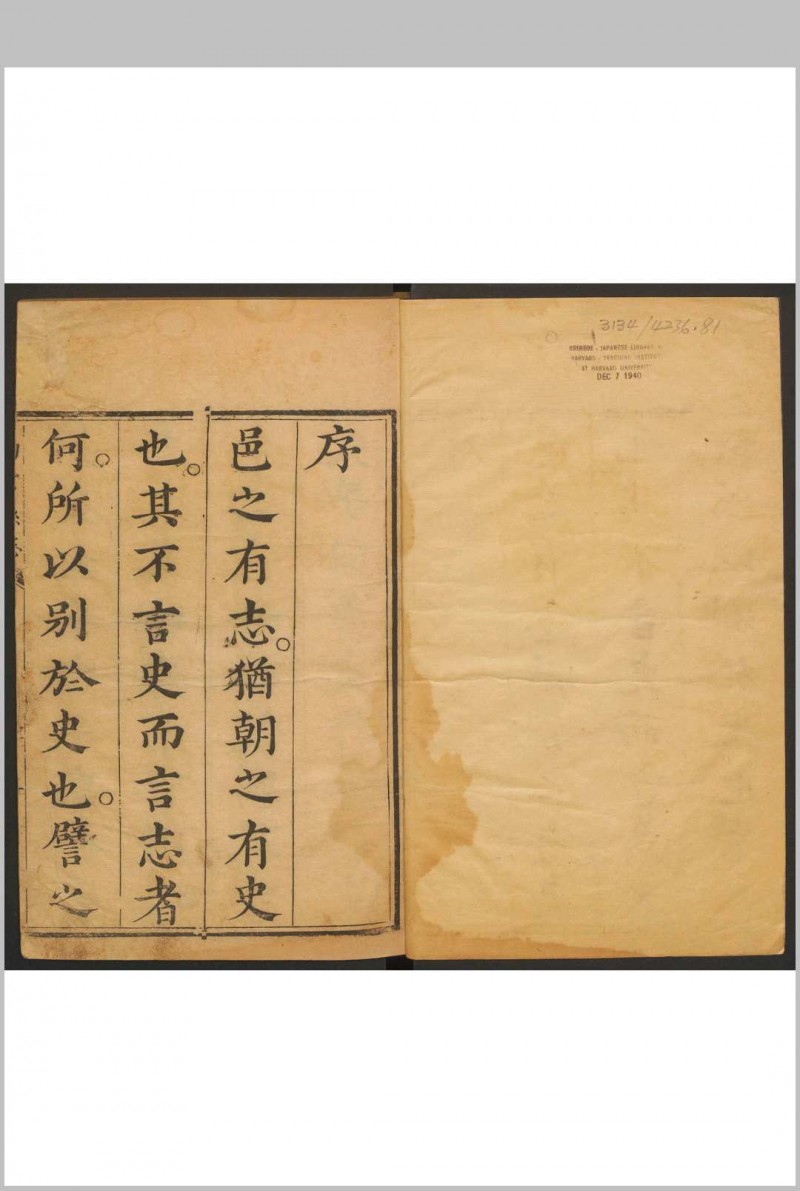 3134/4236.81
CHINESE - JAPANESE LIBRARY
HARVARD - YENCHING INSTITUTE
AT HARVARD UNIVERSITY
DEC 7 1940
序
邑之有志。猶朝之有史
也。其不言史而言志者
何。所以别於史也。譬之